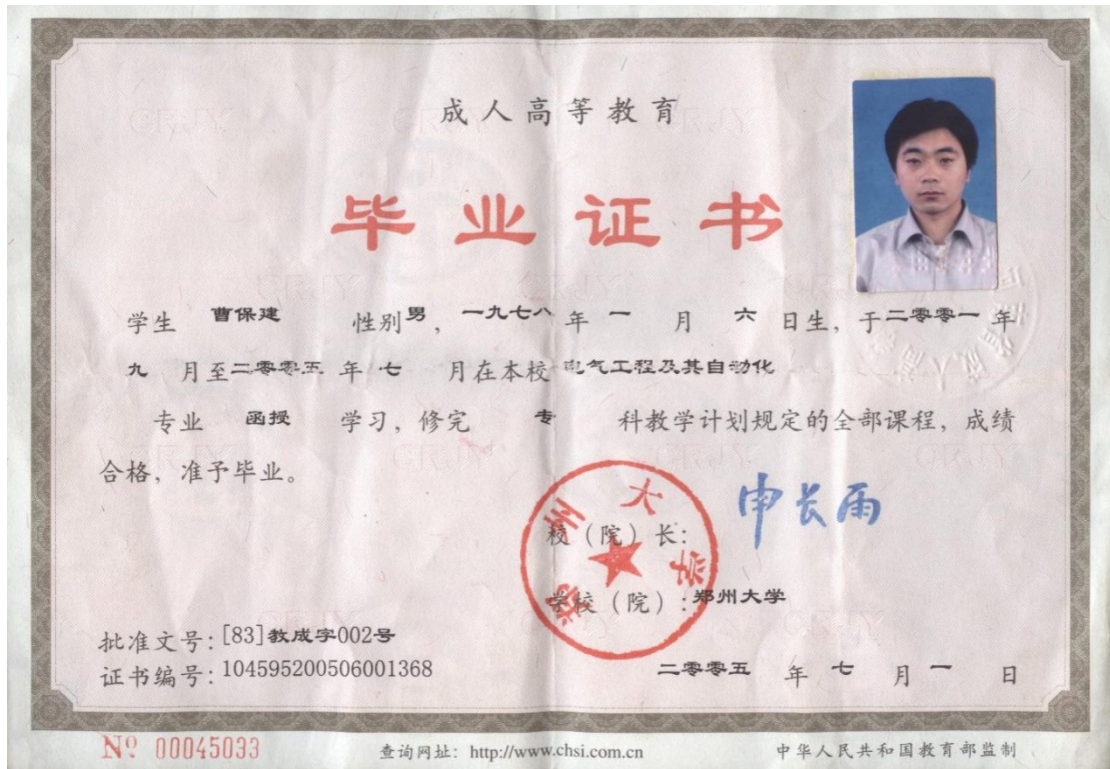 成人高等教育
毕业证书
学生 曹保建 性别 男，一九七八 年 一 月 六 日生，于二零零一 年
九 月至二零零五 年 七 月在本校 电气工程及其自动化
专业 函授 学习，修完 专 科教学计划规定的全部课程，成绩
合格，准予毕业。
校（院）长：申长雨
郑州大学
学校（院）:郑州大学
批准文号:[83]教成字002号
证书编号:104595200506001368
二零零五 年 七 月 一 日
№ 00045033
查询网址：http://www.chsi.com.cn
中华人民共和国教育部监制